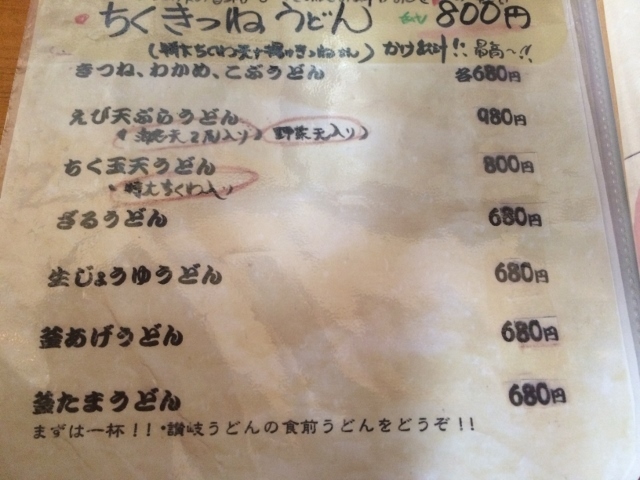 ちくきつねうどん 800円
(特大ちくわ天+揚げきつね入り) かけだし!! 最高〜!!
きつね、わかめ、こぶうどん 各680円
えび天ぷらうどん 980円
(海老天2尾入り) 野菜天入り)
ちく玉天うどん 800円
特大ちくわ入り
ざるうどん 680円
生じょうゆうどん 680円
釜あげうどん 680円
釜たまうどん 680円
まずは一杯!!・讃岐うどんの食前うどんをどうぞ!!